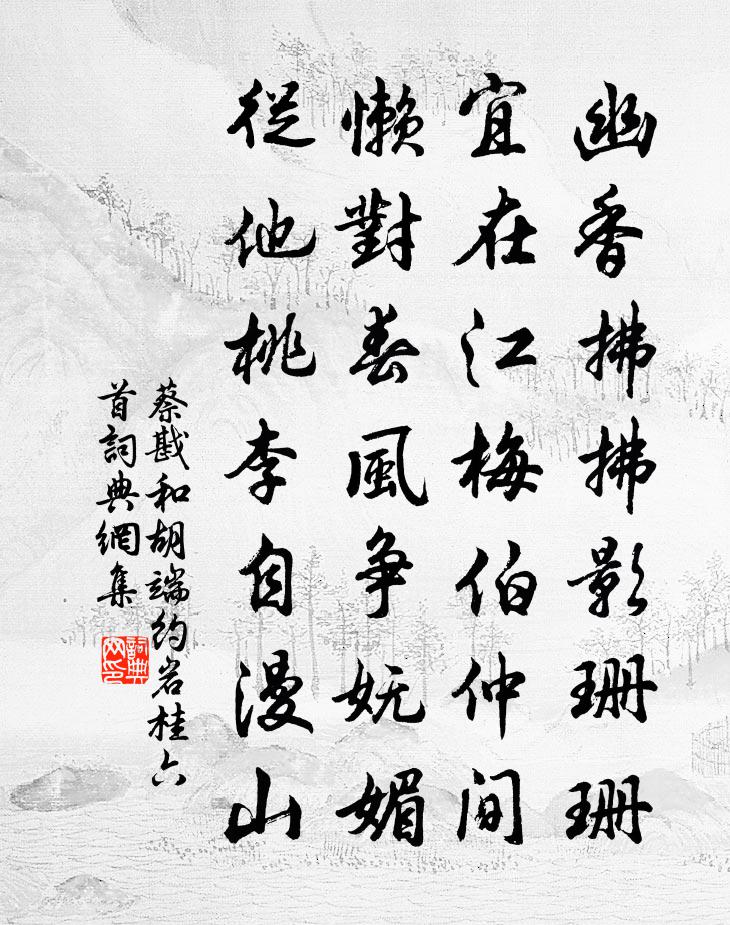 幽香拂拂影珊珊
宜在江梅伯仲間
懶對春風爭妩媚
從他桃李自漫山
蔡戡和胡端約岩桂六
首詞典網集
詞典
网印